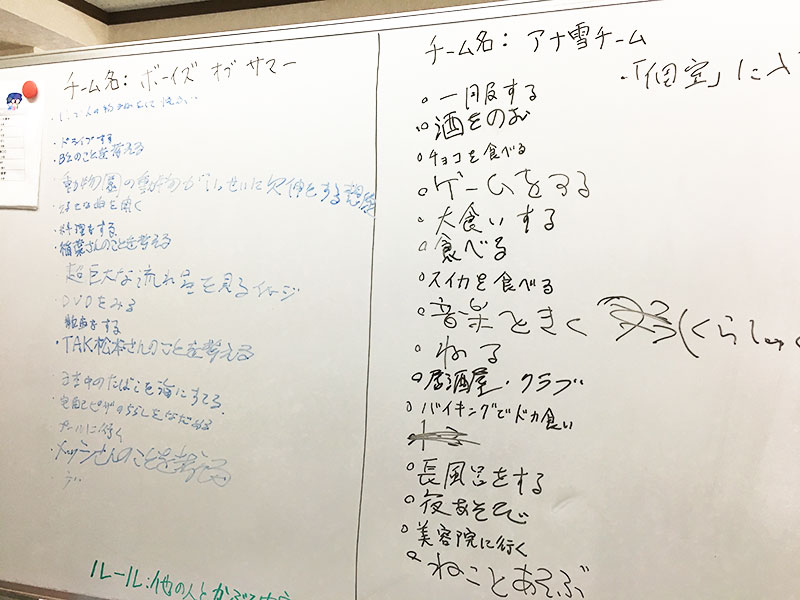 チーム名：ボーイズ オブ サマー
・ドライブする
・B'zのことを考える
動物園の動物がいっせいに欠伸をする想像
・好きな曲を聞く
・料理をする
・稲葉さんのことを考える
超巨大な流れ星を見るイメージ
・DVDをみる
・TAK松本さんのことを考える
・プールに行く
ルール：他の人とかぶる
チーム名：アナ雪チーム
・「個室」に入
○一服する
○酒をのむ
○チョコを食べる
○ゲームをする
○大食いする
○食べる
○スイカを食べる
○音楽ときく
(くらしっく
○ねる
○居酒屋・クラブ
○バイキングでドカ食い
○長風呂をする
○夜あそび
○美容院に行く
○ねことあそぶ